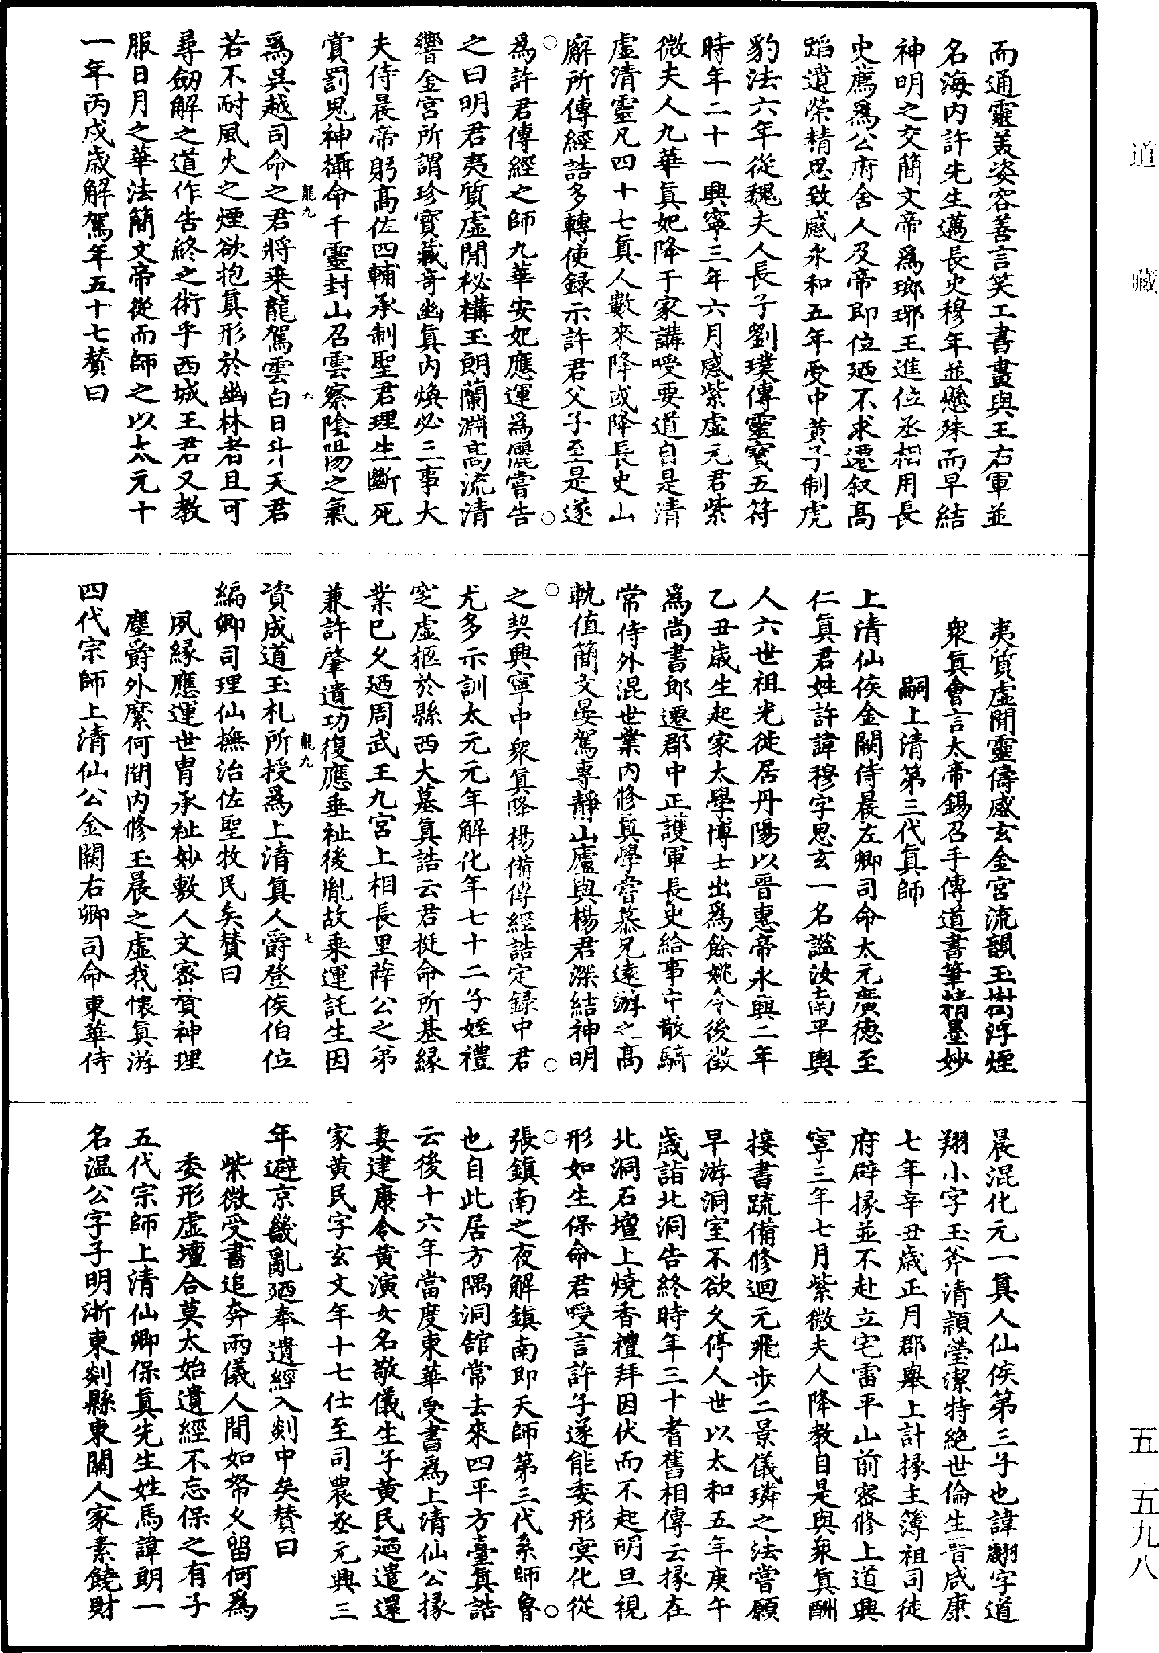 道藏
五 五九八
而通靈美姿容善言笑工書畫與王右軍並
名海内許先生邁長史穆年並懸殊而早結
神明之交簡文帝爲瑯琊王進位丞相用長
史薦爲公府舍人及帝即位廼不求遷叙高
蹈遺榮精思致感永和五年受中黃子制虎
豹法六年從魏夫人長子劉璞傳靈寶五符
時年二十一興寧三年六月感紫虛元君紫
微夫人九華真妃降于家講喥要道自是清
虛清靈凡四十七真人數來降或降長史山
廨所傳經誥多轉使録示許君父子至是遂
爲許君傳經之師九華安妃應運爲儷嘗告
之曰明君夷質虛閒秘構玉朗蘭淵高流清
響金宮所謂珍寳藏奇幽真内煥必三事大
夫侍晨帝躬高佐四輔承制聖君理生斷死
賞罰鬼神攝命千靈封山召雲察陰陽之氣
龍九
爲吳越司命之君將乘龍駕雲白日升天君
六
若不耐風火之煙欲抱真形於幽林者且可
尋劒解之道作告終之術乎西城王君又教
服日月之華法簡文帝從而師之以太元十
一年丙戌歲解駕年五十七贊曰
夷質虛閒靈儔感玄金宮流韻玉樹浮煙
衆真會言太帝錫召手傳道書筆精墨妙
嗣上清第三代真師
上清仙侯金闕侍晨左卿司命太元廣德至
仁真君姓許諱穆字思玄一名謐汝南平輿
人六世祖光徙居丹陽以晉惠帝永興二年
乙丑歲生起家太學博士出爲餘姚令後徵
爲尚書郎遷郡中正護軍長史給事中散騎
常侍外混世業内修真學嘗慕兄遠游之高
軌值簡文晏駕專靜山廬與楊君深結神明
之契興寧中衆真降楊備傳經誥定録中君
尤多示訓太元元年解化年七十二子姪禮
窆虛柩於縣西大墓真誥云君挺命所基縁
業已久廼周武王九宮上相長里薛公之弟
兼許肇遺功復應垂祉後胤故乘運託生因
龍九
資成道玉札所授爲上清真人爵登侯伯位
七
編卿司理仙撫治佐聖牧民矣贊曰
夙縁應運世胄承祉妙敷人文密質神理
塵爵外縻何閒内修玉晨之虛我懷真游
四代宗師上清仙公金闕右卿司命東華侍
晨混化元一真人仙侯第三子也諱翽字道
翔小字玉斧清穎瀅潔特絕世倫生晉咸康
七年辛丑歲正月郡舉上計掾主簿祖司徒
府辟掾並不赴立宅雷平山前密修上道興
寧三年七月紫微夫人降教自是與衆真酬
接書疏備修迴元飛步二景儀璘之法嘗願
早游洞室不欲久停人世以太和五年庚午
歲詣北洞告終時年三十耆舊相傳云掾在
北洞石壇上燒香禮拜因伏而不起明旦視
形如生保命君喥言許子遂能委形冥化從
張鎮南之夜解鎮南即天師第三代系師魯
也自此居方隅洞舘常去來四平方臺真誥
云後十六年當度東華受書爲上清仙公掾
妻建康令黃演女名敬儀生子黃民廼遣還
家黃民字玄文年十七仕至司農丞元興三
年避京畿亂廼奉遺經入剡中矣贊曰
紫微受書追奔兩儀人間如帑久留何爲
委形虛壇合莫太始遺經不忘保之有子
五代宗師上清仙卿保真先生姓馬諱朗一
名溫公字子明浙東剡縣東闕人家素饒財